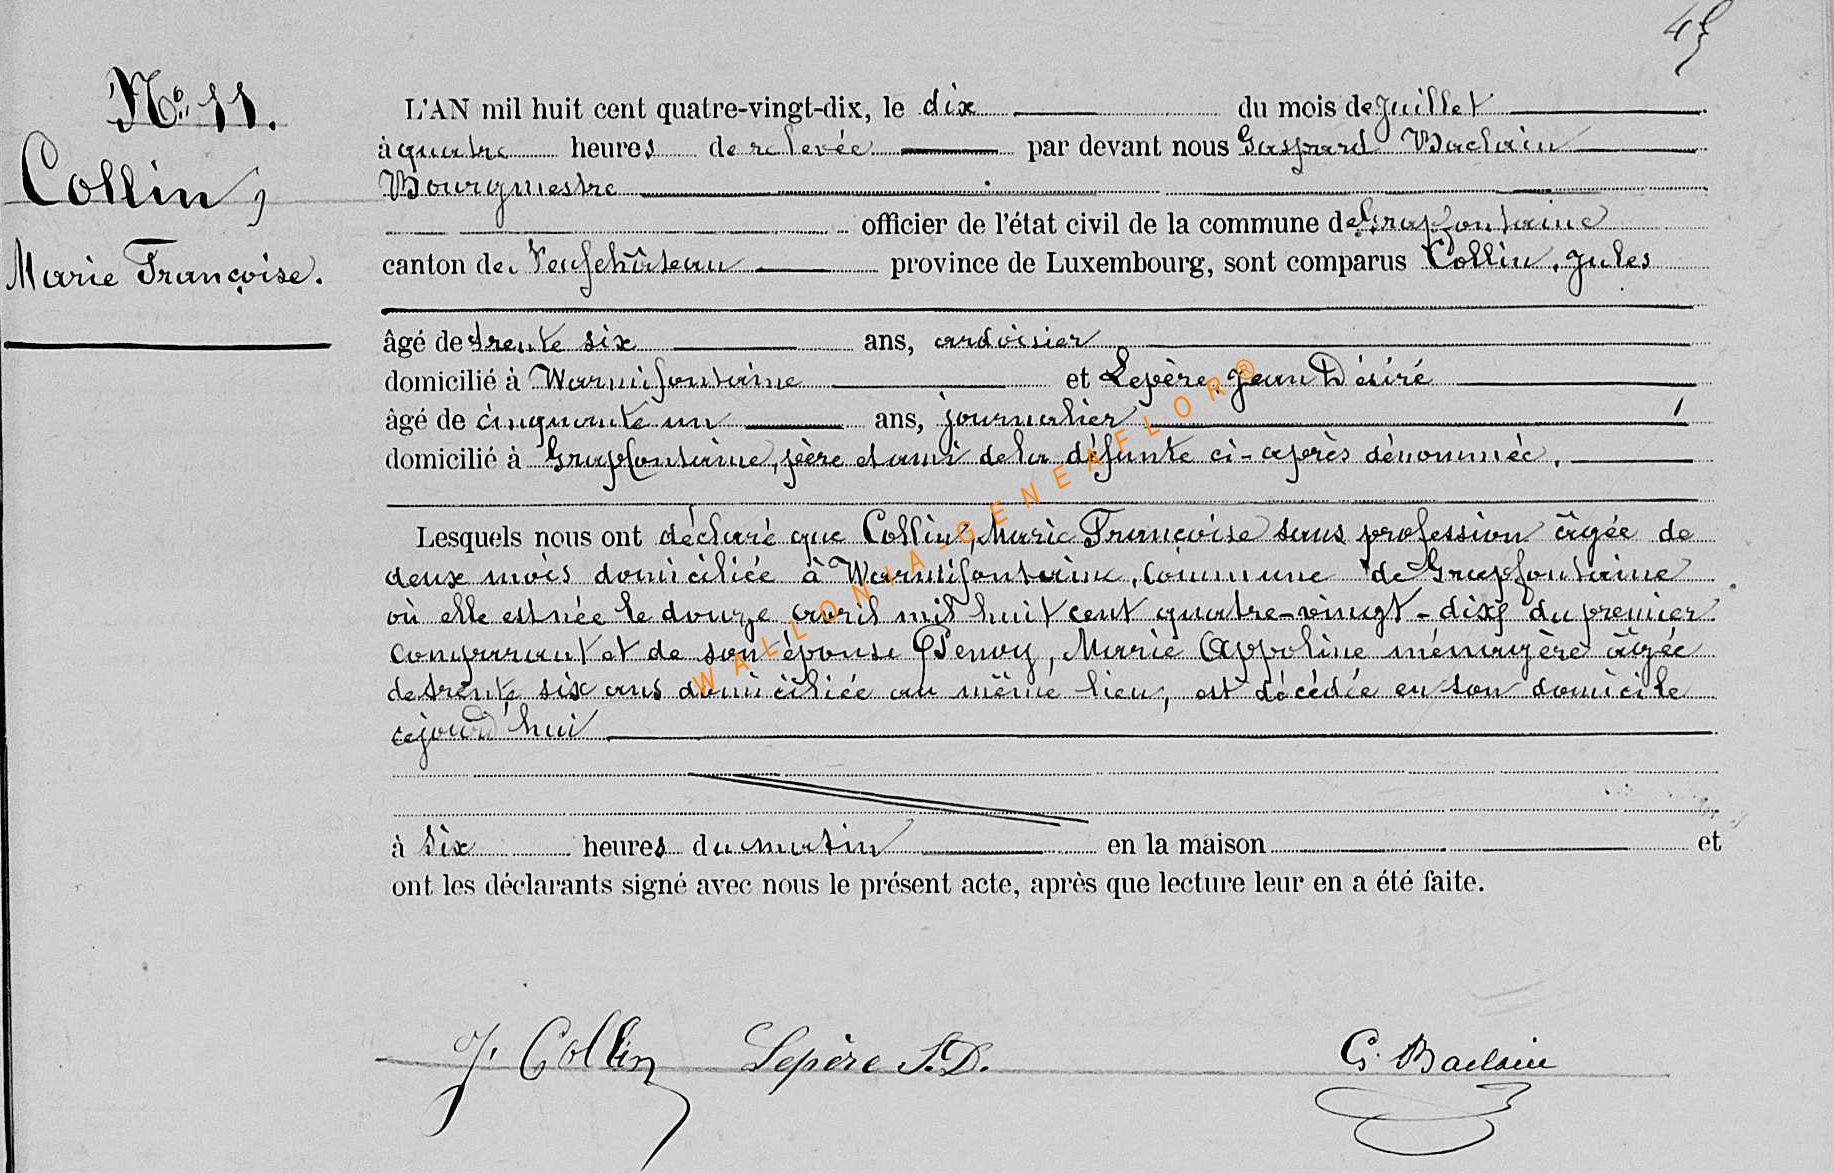 45
N° 11.
Collin,
Marie Françoise.
L'AN mil huit cent quatre-vingt-dix, le dix du mois de juillet
à quatre heures de relevée par devant nous Gaspard Baclain
Bourgmestre
officier de l'état civil de la commune de Grapfontaine
canton de Neufchâteau province de Luxembourg, sont comparus Collin, Jules
âgé de trente six ans, ardoisier
domicilié à Warmifontaine et Lepère, Jean Désiré
âgé de cinquante un ans, journalier
domicilié à Grapfontaine, père et ami de la défunte ci-après dénommée.
Lesquels nous ont déclaré que Collin, Marie Françoise sans profession âgée de
deux mois domiciliée à Warmifontaine, commune de Grapfontaine
où elle est née le douze avril mil huit cent quatre-vingt-dix, du premier
comparant et de son épouse Penoy, Marie Appoline ménagère âgée
de trente six ans domiciliée au même lieu, est décédée en son domicile
cejourd'hui
à six heures du matin en la maison et
ont les déclarants signé avec nous le présent acte, après que lecture leur en a été faite.
J. Collin Lepère J.D. G. Baclain
WALLONIA-GENEAFLOR®